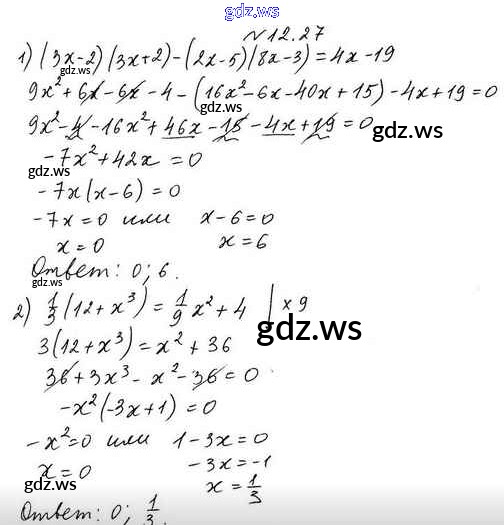 gdz.ws
№12.27
1) (3x-2)(3x+2)-(2x-5)(8x-3)=4x-19
gdz.ws
9x²+6x-6x-4-(16x²-6x-40x+15)-4x+19=0
9x²-4-16x²+46x-15-4x+19=0
gdz.ws
-7x²+42x=0
gdz.ws
-7x(x-6)=0
-7x=0 или x-6=0
gdz.ws
x=0 x=6
gdz.ws
Ответ: 0; 6.
2) 1/3(12+x³)=1/9x²+4 | ×9
gdz.ws
3(12+x³)=x²+36
36+3x³-x²-36=0
gdz.ws
-x²(-3x+1)=0
-x²=0 или 1-3x=0
gdz.ws
x=0 -3x=-1
gdz.ws
x=1/3
Ответ: 0; 1/3.
gdz.ws